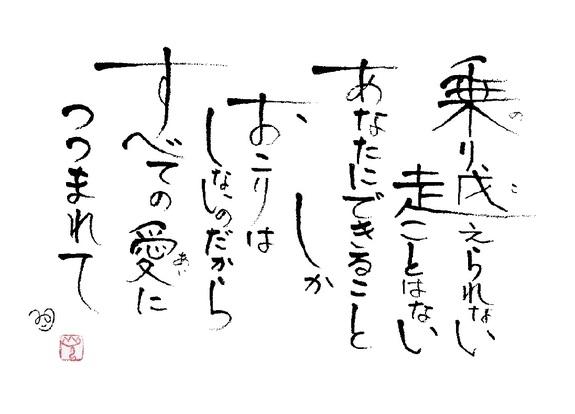 乗り越えられない
ことはない
あなたにできること
しか
おこりは
しないのだから
すべての愛に
つつまれて